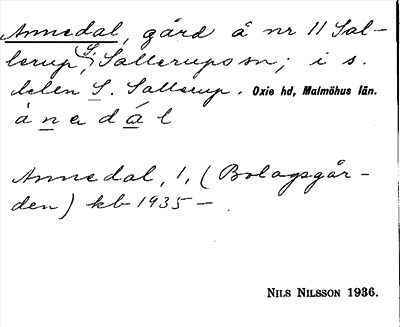 Annedal, gård å nr 11 Sal-
lerup, S. Sallerups sn; i s.
delen S. Sallerup. Oxie hd, Malmöhus län.
ànedál
Annedal, 1, (Bolagsgår-
den) kb 1935 -
NILS NILSSON 1936.